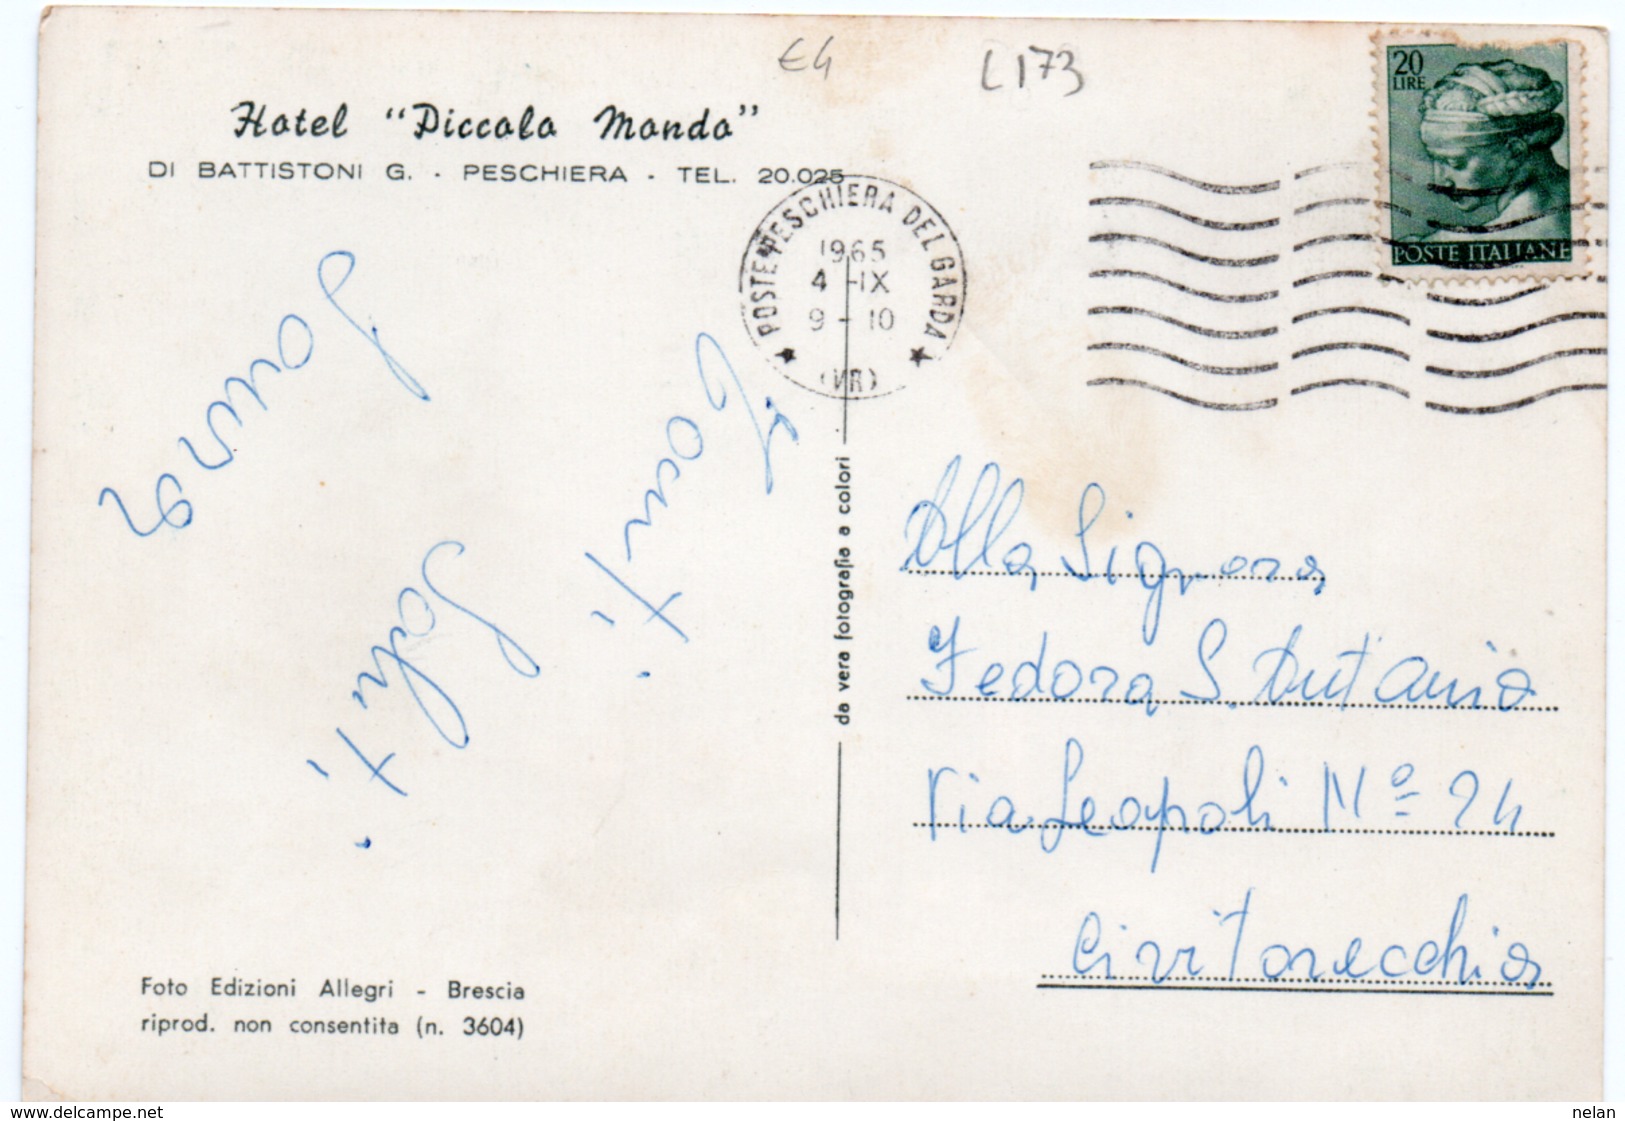 €4
L173
20
LIRE
POSTE ITALIANE
Hotel "Piccolo Mondo"
DI BATTISTONI G. - PESCHIERA - TEL. 20.025
POSTE PESCHIERA DEL GARDA
1965
4 -IX
9 - 10
(VR)
Tanti
Saluti
da vera fotografia a colori
Alla Signora
Fedora S. Antonio
Via Leopoli Nº 24
Civitavecchia
Foto Edizioni Allegri - Brescia
riprod. non consentita (n. 3604)
www.delcampe.net
nelan